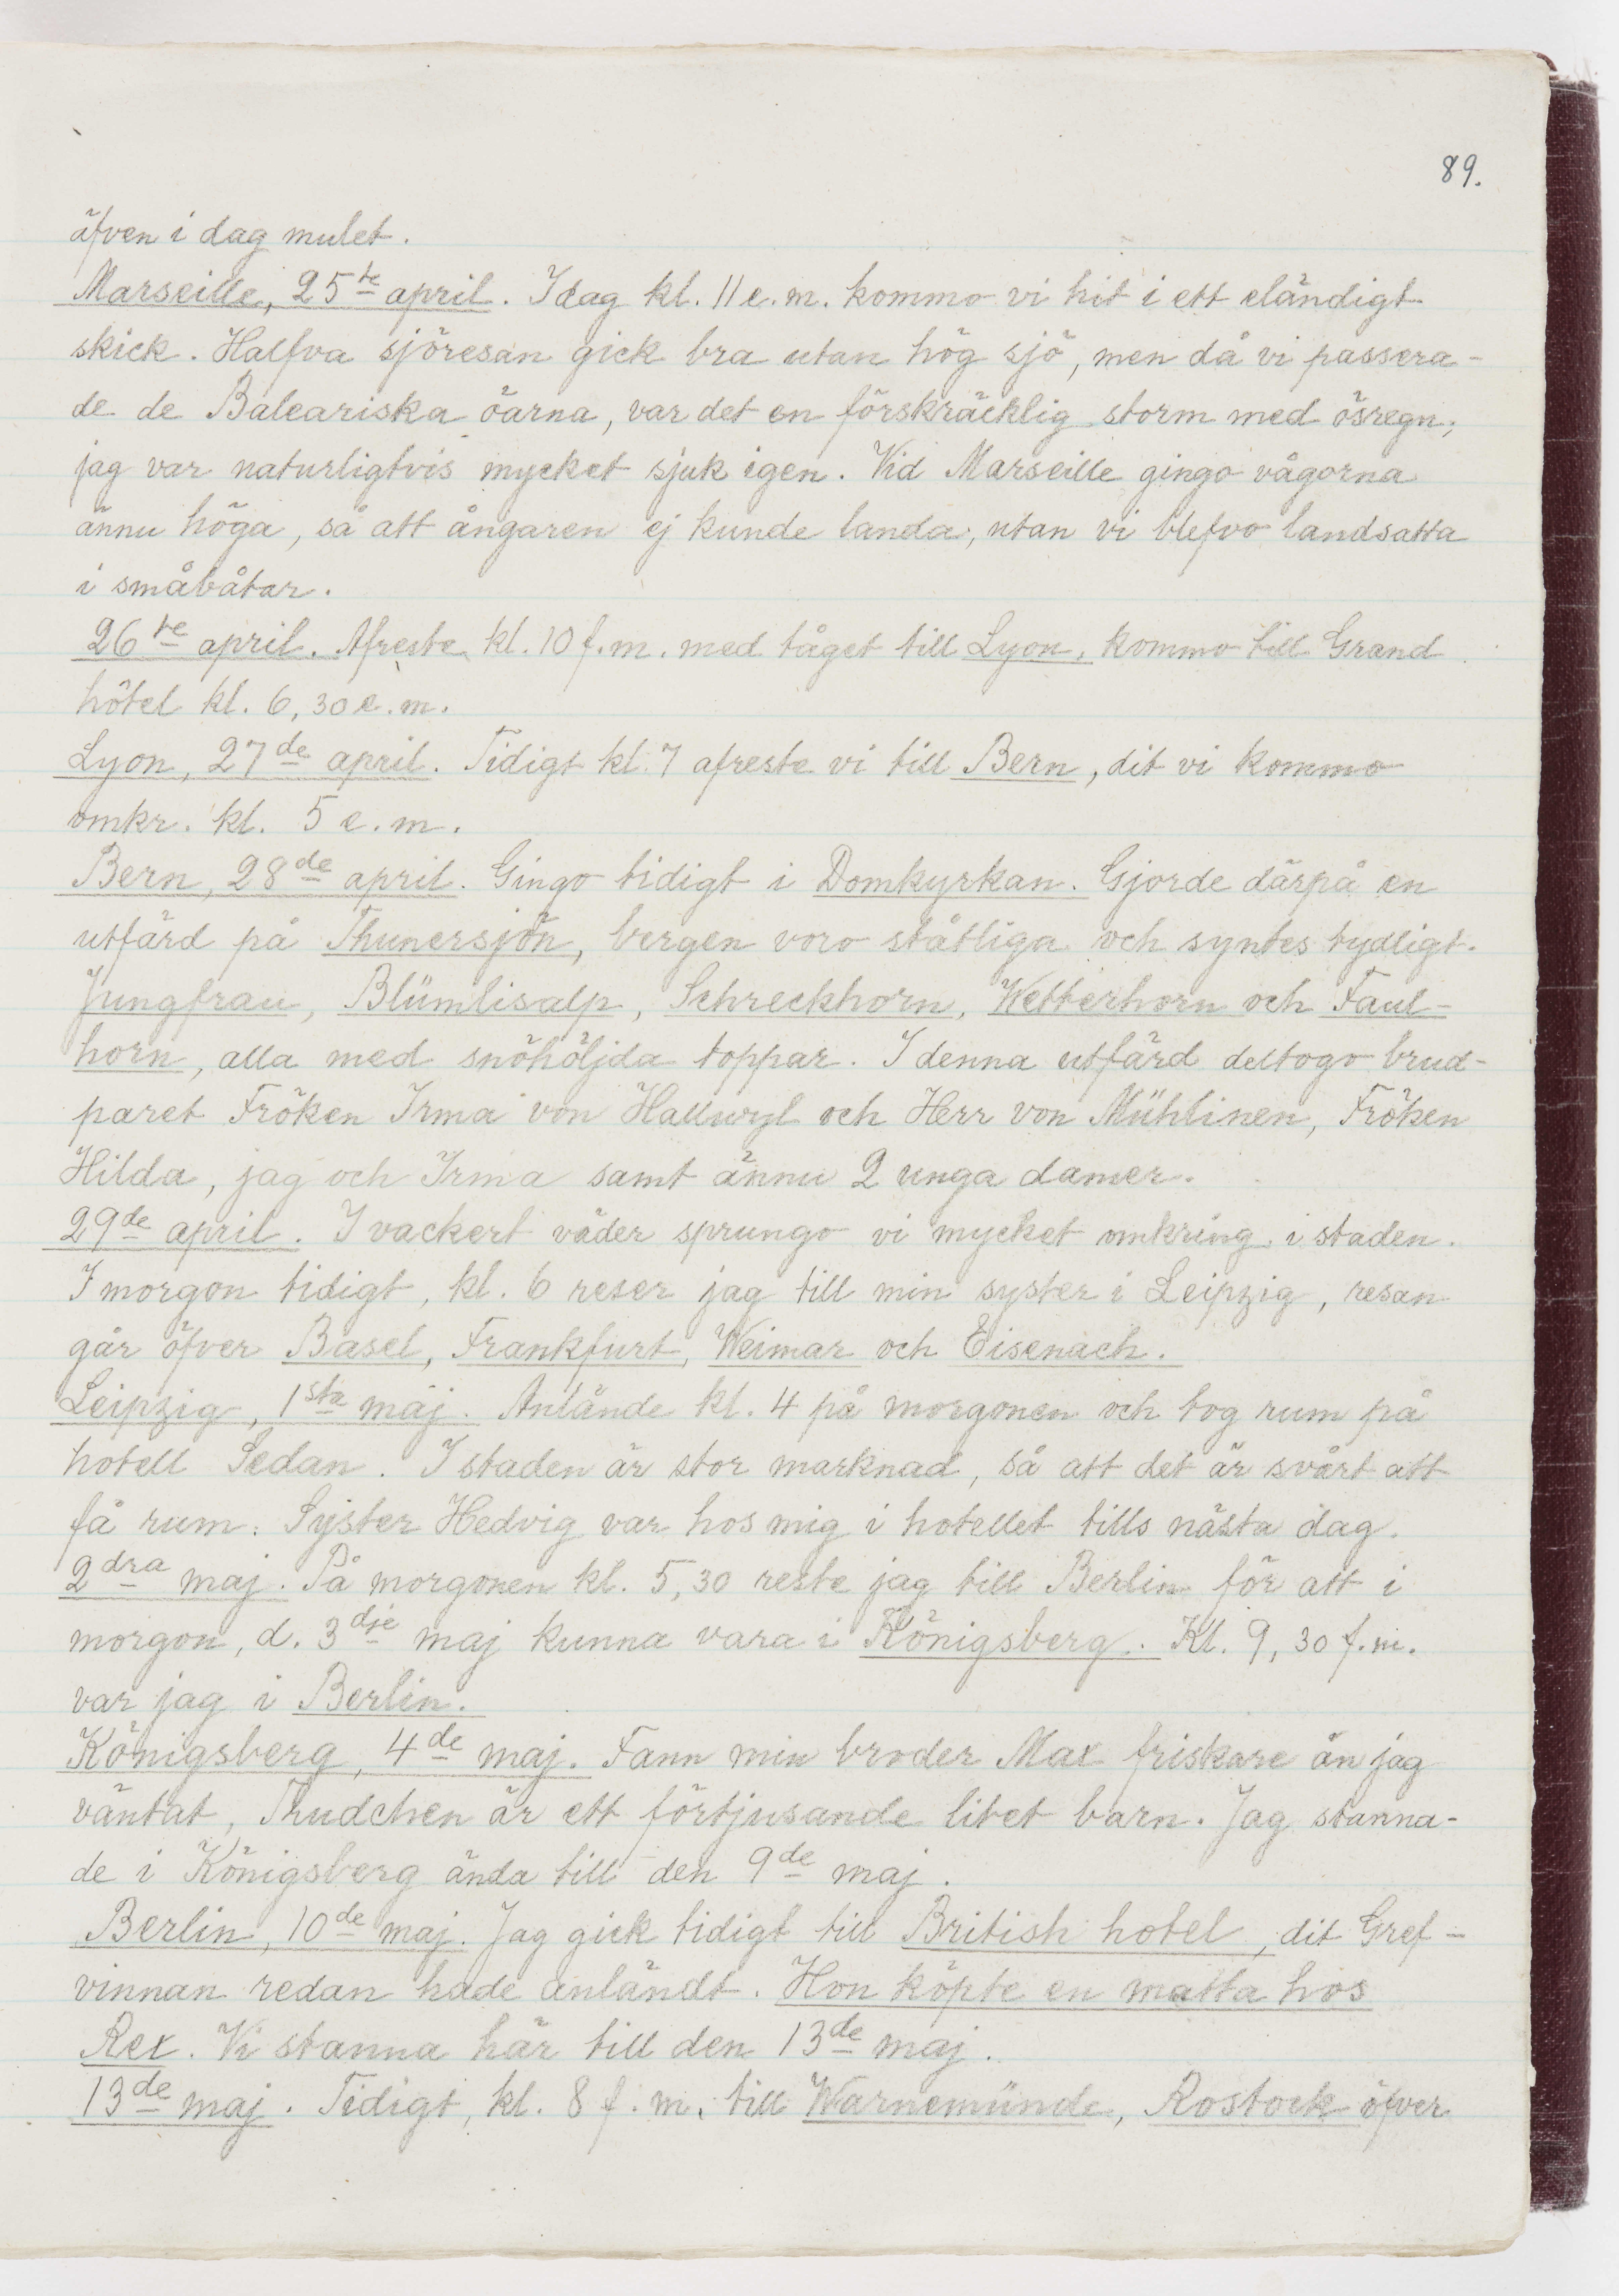 89.
äfven i dag mulet.
Marseille, 25te april. I dag kl. 11 e.m. kommo vi hit i ett eländigt
skick. Halfva sjöresan gick bra utan hög sjö, men då vi passera-
de de Baleariska öarna, var det en förskräcklig storm med ösregn;
jag var naturligtvis mycket sjuk igen. Vid Marseille gingo vågorna
ännu höga, så att ångaren ej kunde landa, utan vi blefvo landsatta
i småbåtar.
26te april. Afreste kl. 10 f.m. med tåget till Lyon, kommo till Grand
hôtel kl. 6,30 e.m.
Lyon, 27de april. Tidigt kl. 7 afreste vi till Bern, dit vi kommo
omkr. kl. 5 e.m.
Bern, 28de april. Gingo tidigt i Domkyrkan. Gjorde därpå en
utfärd på Thunersjön, bergen voro ståtliga och syntes tydligt.
Jungfrau, Blümlisalp, Schreckhorn, Wetterhorn och Faul-
horn, alla med snöhöljda toppar. I denna utfärd deltogo brud-
paret Fröken Irma von Hallwyl och Herr von Mühlinen, Fröken
Hilda, jag och Irma samt ännu 2 unga damer.
29de april. I vackert väder sprungo vi mycket omkring i staden.
I morgon tidigt, kl. 6 reser jag till min syster i Leipzig, resan
går öfver Basel, Frankfurt, Weimar och Eisenach.
Leipzig, 1sta maj. Anlände kl. 4 på morgonen och tog rum på
hotell Sedan. I staden är stor marknad, så att det är svårt att
få rum. Syster Hedvig var hos mig i hotellet tills nästa dag.
2dra maj. På morgonen kl. 5,30 reste jag till Berlin för att i
morgon, d. 3dje maj kunna vara i Königsberg. Kl. 9,30 f.m.
var jag i Berlin.
Königsberg, 4de maj. Fann min broder Max friskare än jag
väntat, Thudchen är ett förtjusande litet barn. Jag stanna-
de i Königsberg ända till den 9de maj.
Berlin, 10de maj. Jag gick tidigt till British hotel, dit Gref-
vinnan redan hade anländt. Hon köpte en matta hos
Rex. Vi stanna här till den 13de maj.
13de maj. Tidigt, kl. 8 f.m. till Warnemünde, Rostock öfver